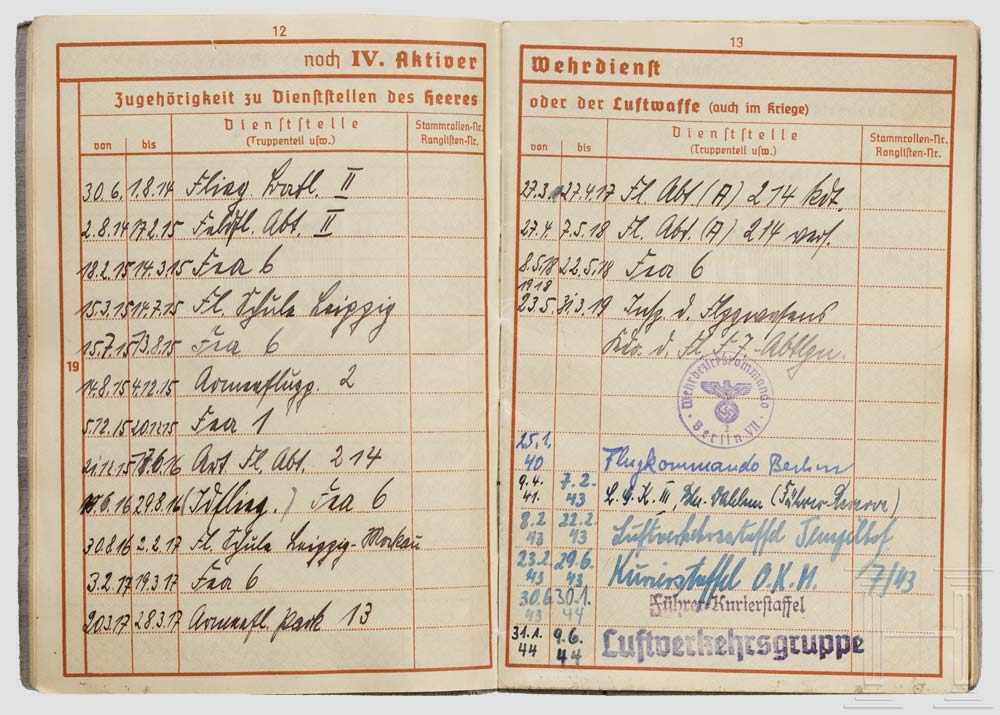 12
noch IV. Aktiver
Zugehörigkeit zu Dienststellen des Heeres
von bis Dienststelle (Truppenteil usw.) Stammrollen-Nr. Ranglisten-Nr.
19
30.6. 1.8.14 Flieg. Batl. II
2.8.14 17.2.15 Feldfl. Abt. II
18.2.15 14.3.15 Fea 6
15.3.15 14.7.15 Fl. Schule Leipzig
15.7.15 13.8.15 Fea 6
14.8.15 4.12.15 Armeeflugp. 2
5.12.15 20.12.15 Fea 1
21.12.15 Art. Fl. Abt. 214
29.8.16 (Idflieg.) Fea 6
30.8.16 2.2.17 Fl. Schule Leipzig-Mockau
3.2.17 19.3.17 Fea 6
20.3.17 28.3.17 Armeefl. Park 13
13
Wehrdienst
oder der Luftwaffe (auch im Kriege)
von bis Dienststelle (Truppenteil usw.) Stammrollen-Nr. Ranglisten-Nr.
27.3. 27.4.17 Fl. Abt. (A) 214 kdt.
27.4. 7.5.18 Fl. Abt. (A) 214 vers.
8.5.18 22.5.18 Fea 6
1918
23.5. 31.3.19 Insp. d. Flggwesens
d. Fl. F.J.-Abtlgn.
Wehrbezirkskommando Berlin VII
25.1.40 Flugkommando Berlin
9.4.41. 7.2.43 L.G.K. III, Bln. Dahlem (Führer-Reserve)
8.2.43 22.2.43 Luftverkehrsstaffel Tempelhof
23.2.43 29.6.43 Kurierstaffel O.K.M. 7/43
30.6.43 30.1.44 Führer-Kurierstaffel
31.1.44 9.6.44 Luftverkehrsgruppe